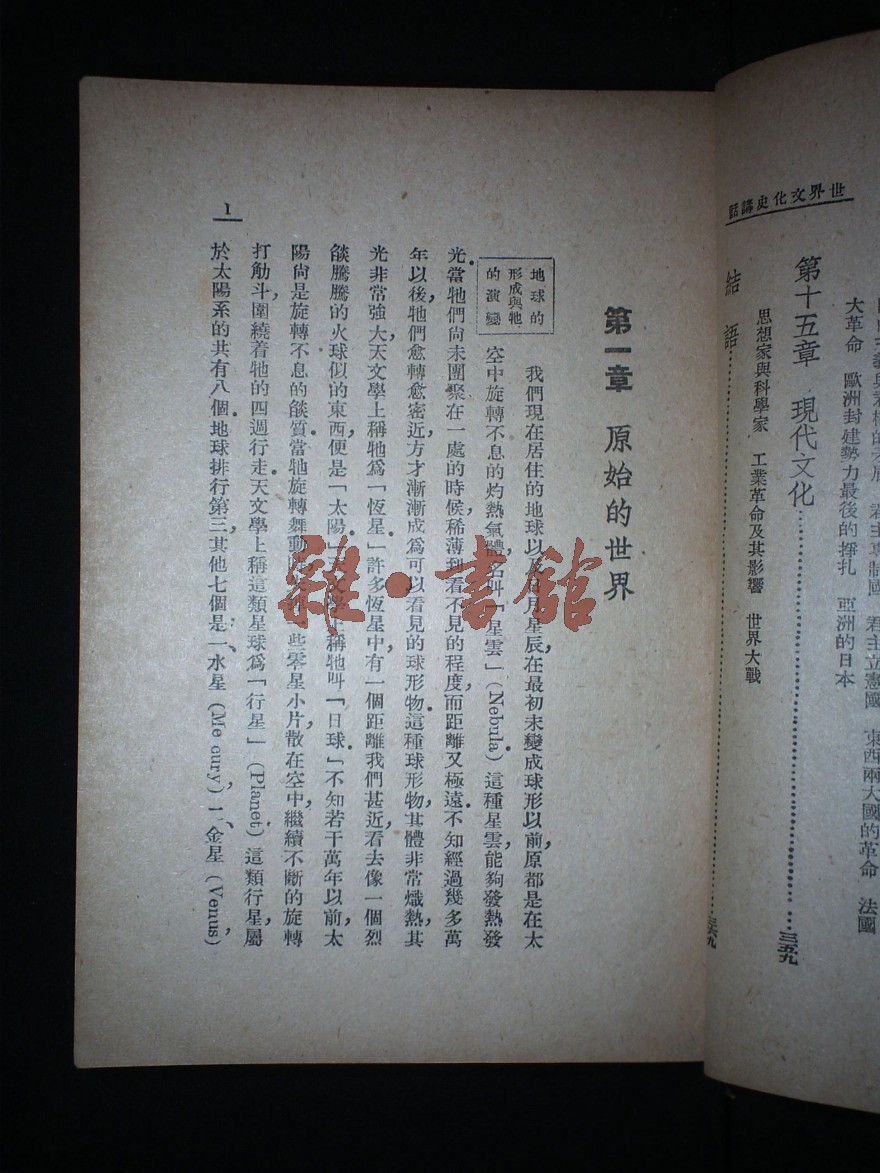 世界文化史講話
君主專制國 君主立憲國 東西兩大國的革命 法國
大革命 歐洲封建勢力最後的掙扎 亞洲的日本
第十五章 現代文化…………三五九
思想家與科學家 工業革命及其影響 世界大戰
結語…………三六九
第一章 原始的世界
地球的
形成與牠
的演變
我們現在居住的地球以及日月星辰,在最初未變成球形以前,原都是在太
空中旋轉不息的灼熱氣體,名叫「星雲」(Nebula)這種星雲能夠發熱發
光。當牠們尚未團聚在一處的時候,稀薄到看不見的程度,而距離又極遠。不知經過幾多萬
年以後,牠們愈轉愈密近,方才漸漸成爲可以看見的球形物。這種球形物,其體非常熾熱,其
光非常強大,天文學上稱牠爲「恆星」許多恆星中,有一個距離我們甚近,看去像一個烈
燄騰騰的火球似的東西,便是「太陽」天文學上稱牠叫「日球」不知若干萬年以前,太
陽尚是旋轉不息的燄質。當牠旋轉舞動一些零星小片,散在空中,繼續不斷的旋轉
打觔斗,圍繞着牠的四週行走。天文學上稱這類星球爲「行星」(Planet)這類行星,屬
於太陽系的共有八個。地球排行第三,其他七個是一、水星(Me cury)、金星(Venus),
1
雜·書館